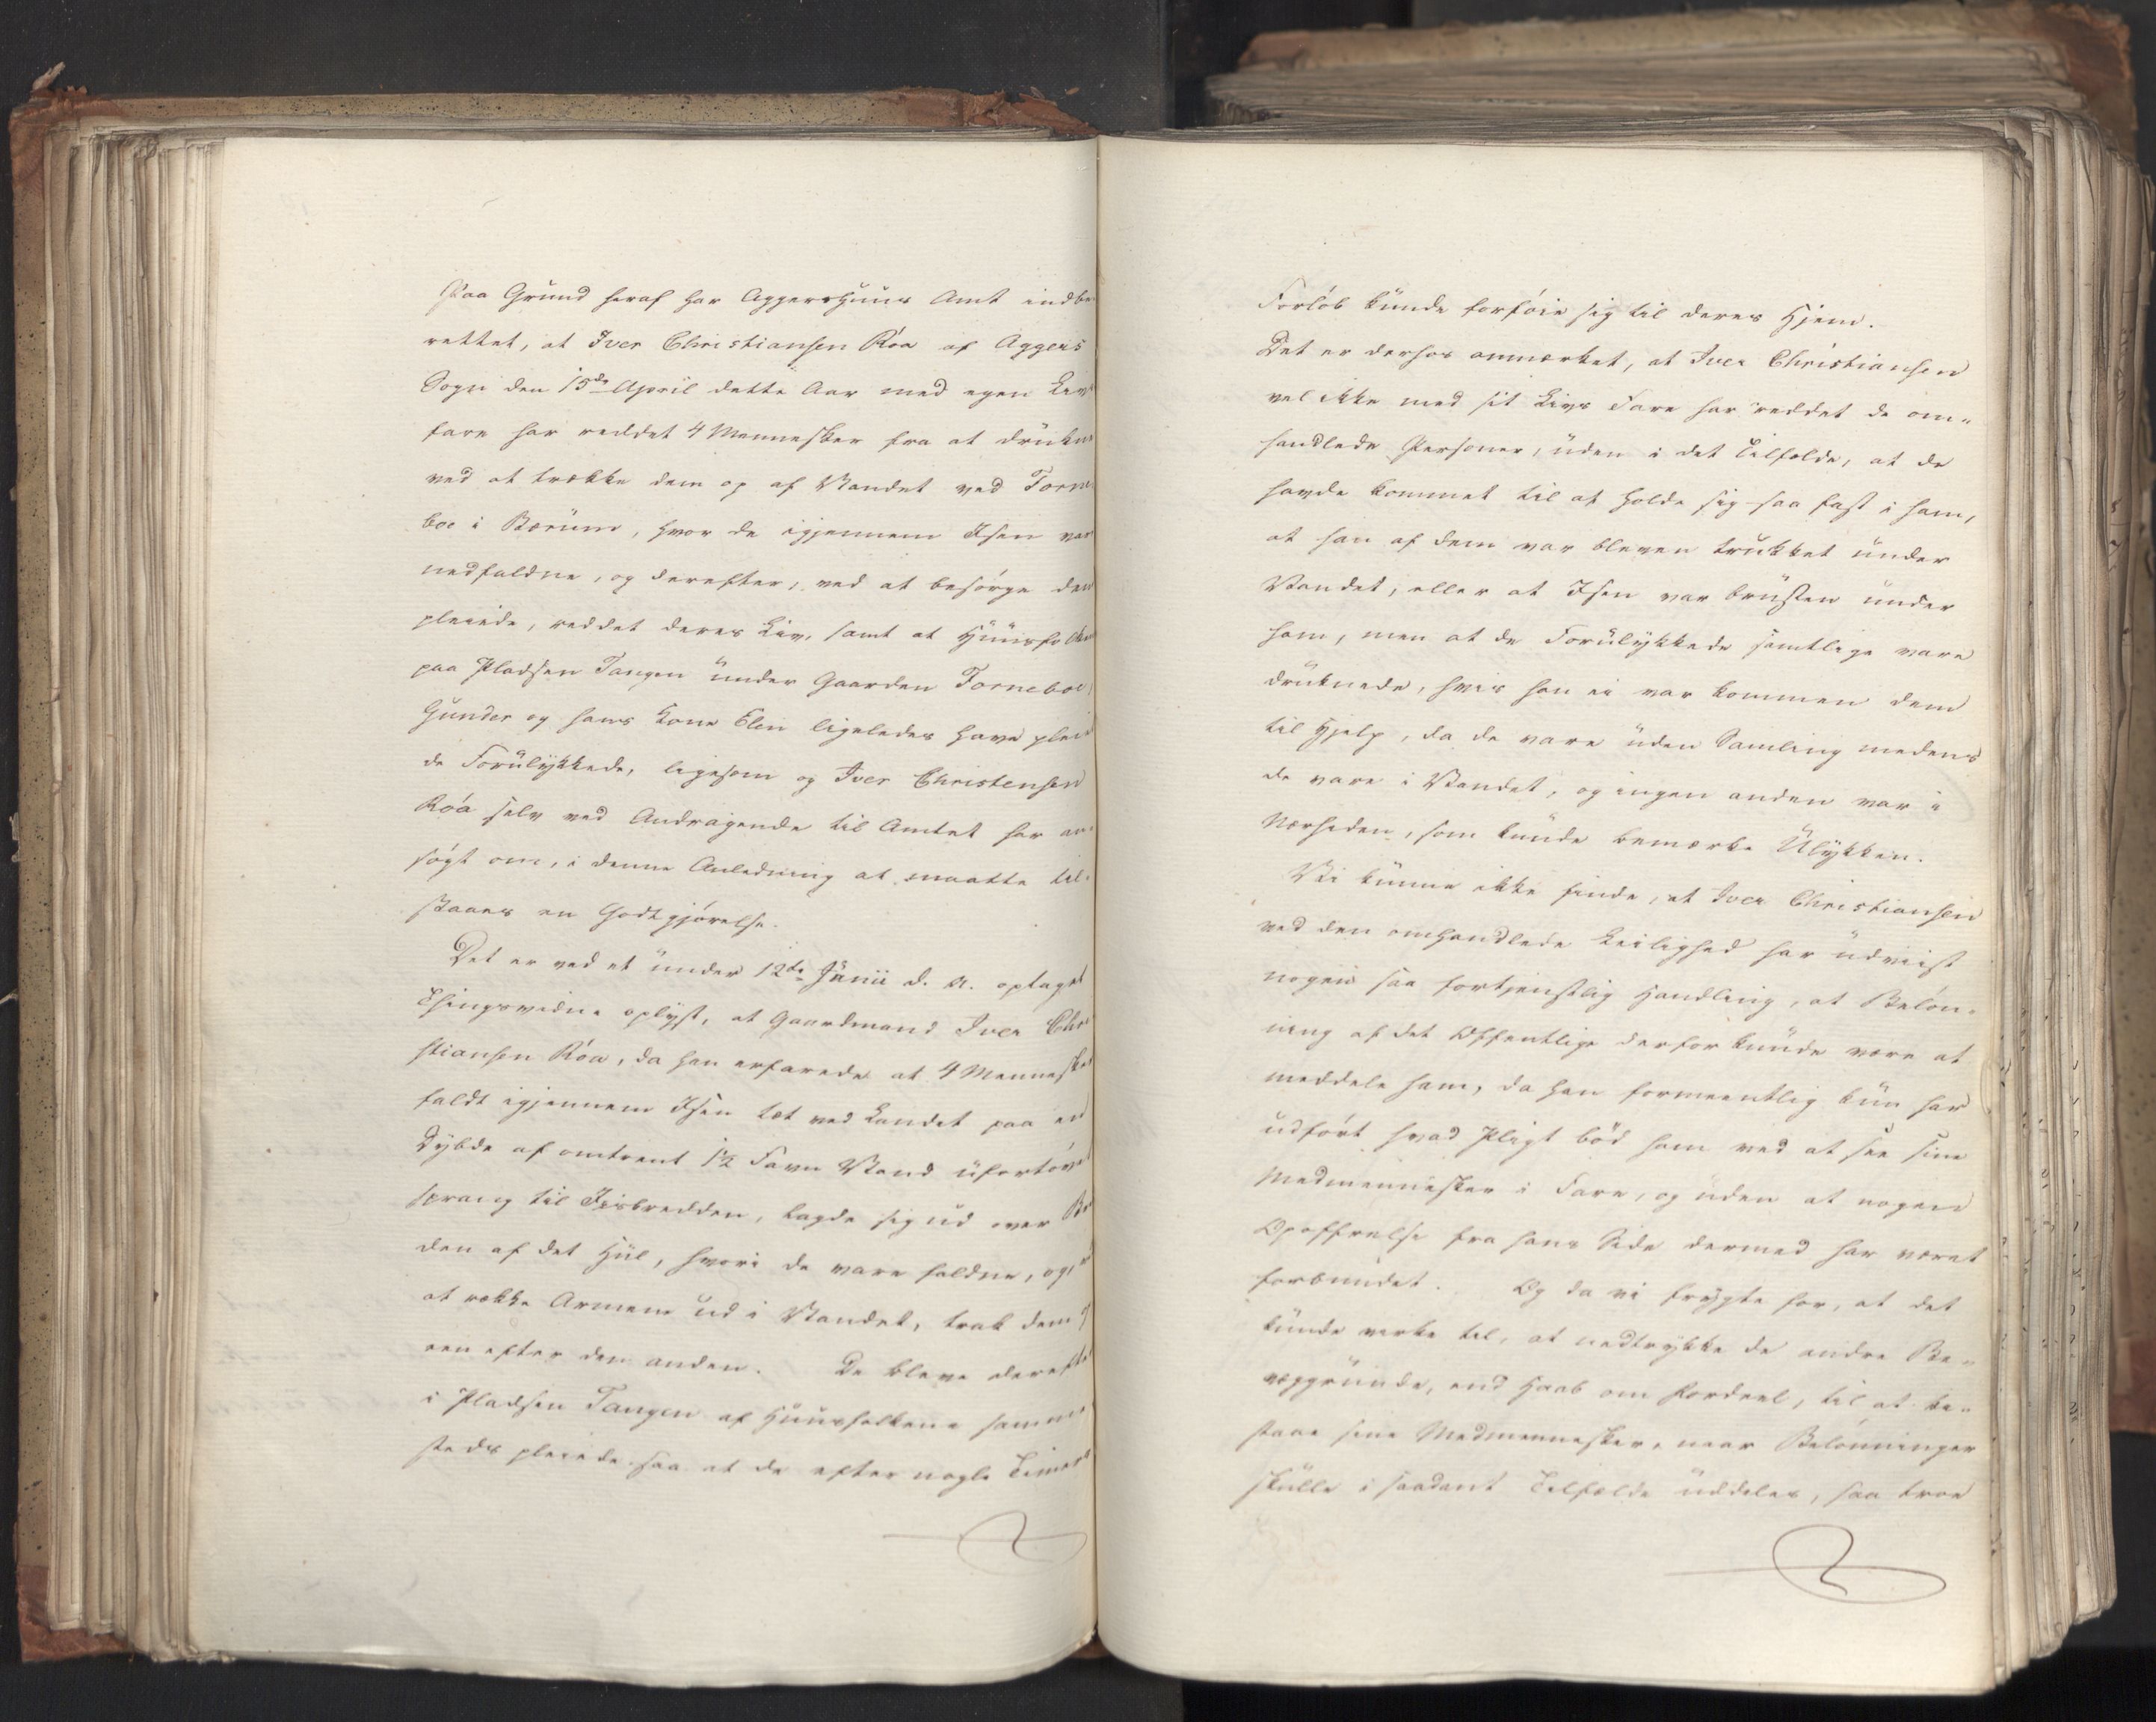 Paa Grund heraf har Aggershuus Amt indbe
rettet, at Iver Christiansen Röa af Aggers
Sogn den 15de April dette Aar med egen Livs
fare har reddet 4 Mennesker fra at drukne
ved at trække dem op af Vandet ved Torne
boe i Bærum, hvor de igjennem Isen vare
nedfaldne, og derefter, ved at besørge dem
pleiede, reddet deres Liv, samt at Huusfolkene
paa Pladsen Tangen under Gaarden Torneboe,
Gunder og hans Kone Elen ligeledes have pleiet
de Forulykkede, ligesom og Iver Christensen
Röa selv ved Andragende til Amtet har an
søgt om, i denne Anledning at maatte til-
staaes en Godtgjörelse.
Det er ved et under 12te Junii d. A. optaget
Thingsvidne oplyst, at Gaardmand Iver Chri
stiansen Röa, da han erfarede at 4 Mennesker
faldt igjennem Isen tæt ved Landet paa en
Dybde af omtrent 1½ Favn Vand ufortövet
sprang til Iisbredden, lagde sig ud over Bre
den af det Hul, hvori de vare faldne, og, ved
at række Armene ud i Vandet, trak dem op
een efter den anden. De bleve derefter
i Pladsen Tangen af Huusfolkene samme
steds pleiede saa at de efter nogle Timers
Forløb kunde forföie sig til deres Hjem.
Det er derhos anmærket, at Iver Christiansen
vel ikke med sit Livs Fare har reddet de om-
handlede Personer, uden i det Tilfælde, at de
havde kommet til at holde sig saa fast i ham,
at han af dem var bleven trukket under
Vandet, eller at Isen var brusten under
ham, men at de Forulykkede samtlige vare
druknede, hvis han ei var kommen dem
til Hjelp, da de vare uden Samling medens
de vare i Vandet, og ingen anden var i
Nærheden, som kunde bemærke Ulykken.
Vi kunne ikke finde, at Iver Christiansen
ved den omhandlede Leilighed har udviist
nogen saa fortjenstlig Handling, at Belön-
ning af det Offentlige derfor kunde være at
meddele ham, da han formeentlig kun har
udfört hvad Pligt böd ham ved at see sine
Medmennesker i Fare, og uden at nogen
Opoffrelse fra hans Side dermed har været
forbundet. Og da vi frygte for, at det
kunde virke til, at nedtrykke de andre Be-
væggrunde, end Haab om Fordeel, til at bi-
staae sine Medmennesker, naar Belönninger
skulle i saadant Tilfælde uddeles, saa troe